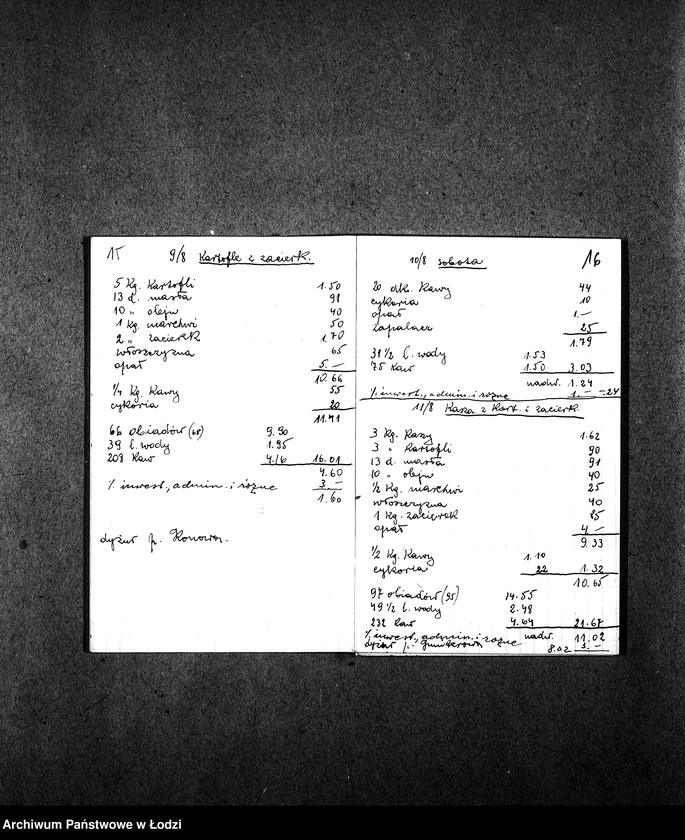 15 9/8 Kartofle z zacierk.
5 kg. Kartofli 1.50
13 d. masła 91
10 " oleju 40
1 kg. marchwi 50
2 " zacierek 1.70
włoszczyzna 65
opał 5.—
10.66
1/4 kg. Kawy 55
cykoria 20
11.41
66 obiadów (68) 9.90
39 l. wody 1.95
208 kaw 4.16 16.01
4.60
% inwest., admin. i różne 3.—
1.60
dyżur p. Konowa.
10/8 sobota 16
20 dk. Kawy 44
cykoria 10
opał 1.—
zapałacz 25
1.79
31 1/2 l. wody 1.53
75 kaw 1.50 3.03
nadw. 1.24
% inwest., admin. i różne 1.— -.24
11/8 Kasza z Kart. i zacierk.
3 kg. Kaszy 1.62
3 " Kartofli 90
13 d. masła 91
10 " oleju 40
1/2 kg. marchwi 25
włoszczyzna 40
1 kg. zacierek 85
opał 4.—
9.33
1/2 kg. Kawy 1.10
cykoria 22 1.32
10.65
97 obiadów (95) 14.55
49 1/2 l. wody 2.48
232 kaw 4.64 21.67
% inwest., admin. i różne nadw. 11.02
dyżur p. 8.02 3.—
Archiwum Państwowe w Łodzi